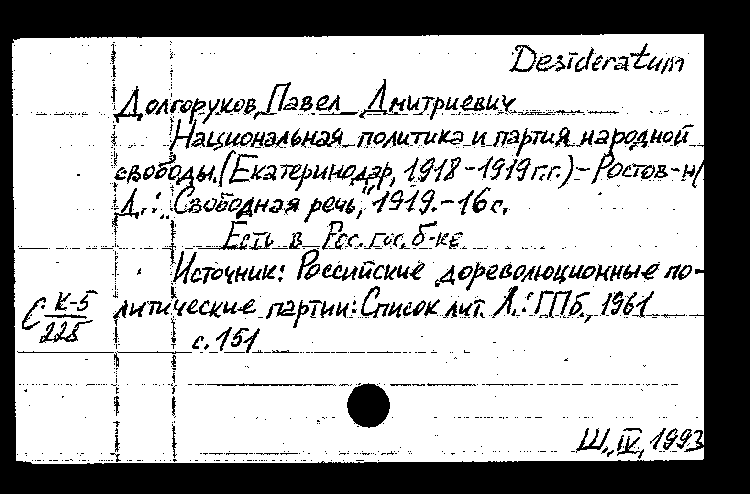 Desideratum
Долгоруков, Павел Дмитриевич
Национальная политика и партия народной
свободы. (Екатеринодар, 1918-1919 г.г.) - Ростов-н/
Д.: "Свободная речь," 1919. - 16 с.
Есть в Рос. гос. б-ке
Источник: Российские дореволюционные по-
литические партии: Список лит. Л.: ГПБ, 1961
с. 151
С К-5
228
Ш., IV, 1993